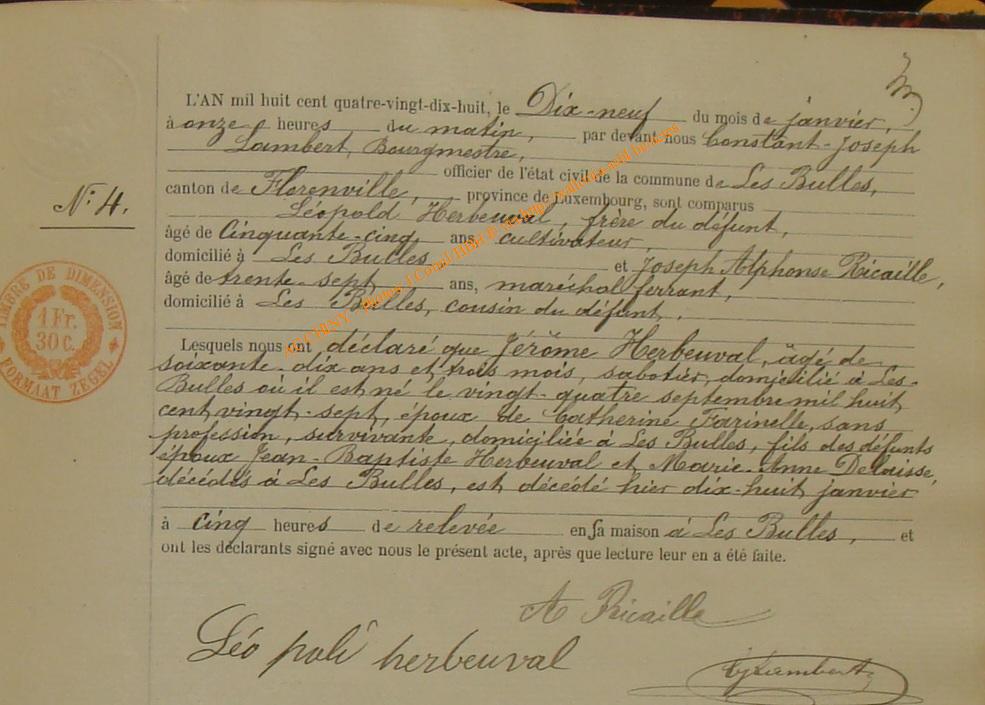 L'AN mil huit cent quatre-vingt-dix-huit, le Dix-neuf du mois de janvier,
à onze heures du matin, par devant nous Constant-Joseph
Lambert, Bourgmestre,
officier de l'état civil de la commune de Les Bulles,
canton de Florenville, province de Luxembourg, sont comparus
Léopold Herbeuval, frère du défunt,
âgé de Cinquante-cinq ans, cultivateur,
domicilié à Les Bulles et Joseph Alphonse Ricaille,
âgé de trente-sept ans, maréchal ferrant,
domicilié à Les Bulles, cousin du défunt.
Lesquels nous ont déclaré que Jérôme Herbeuval, âgé de
soixante-dix ans et trois mois, sabotier, domicilié à Les-
Bulles où il est né le vingt-quatre septembre mil huit
cent vingt-sept, époux de Catherine Farinelle, sans
profession, survivante, domiciliée à Les Bulles, fils des défunts
époux Jean-Baptiste Herbeuval et Marie-Anne
décédés à Les Bulles, est décédé hier dix-huit janvier
à cinq heures de relevée en sa maison à Les Bulles, et
ont les déclarants signé avec nous le présent acte, après que lecture leur en a été faite.
N° 4.
TIMBRE DE DIMENSION
1 Fr.
30 C.
FORMAAT ZEGEL
A Ricaille
Léo poli herbeuval
CJLambert